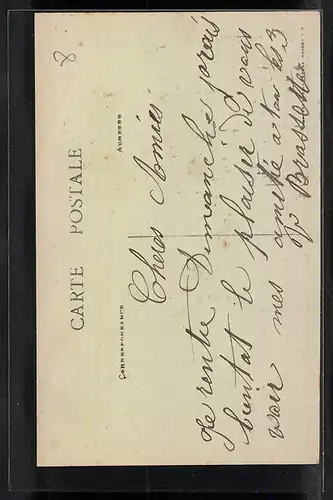 8
CARTE POSTALE
CORRESPONDANCE
ADRESSE
Cheres Amies
Je rentre Dimanche jorais
bientot le plaisir de vous
voir mes amitié a tous les 3